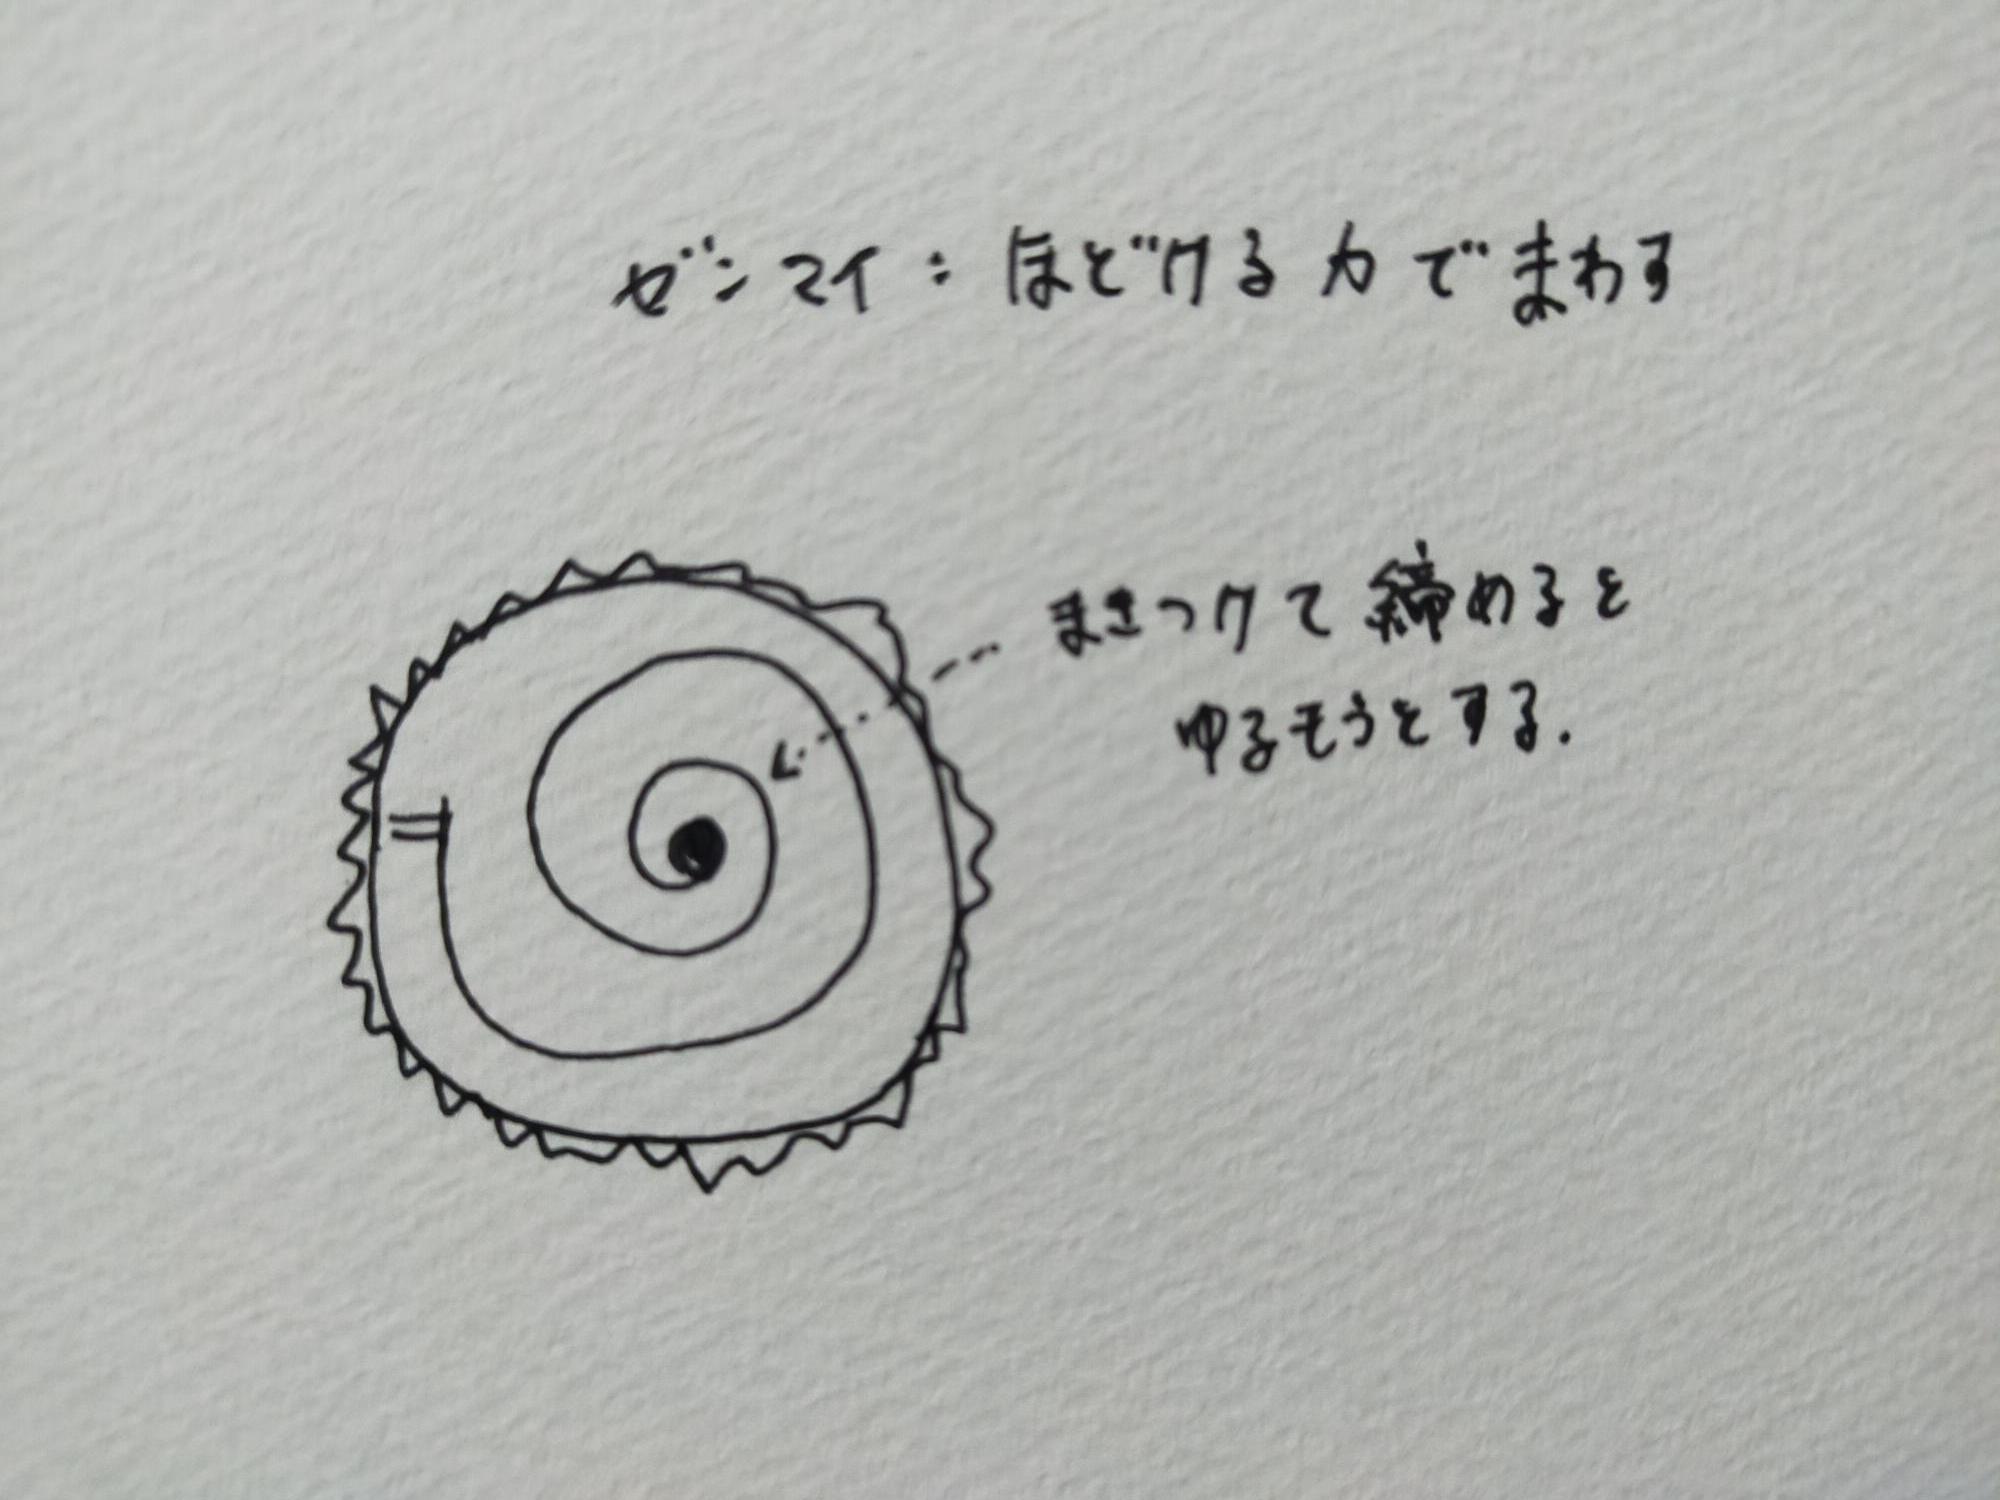 ゼンマイ：ほどける力でまわす
まきつけて締めると
ゆるもうとする.